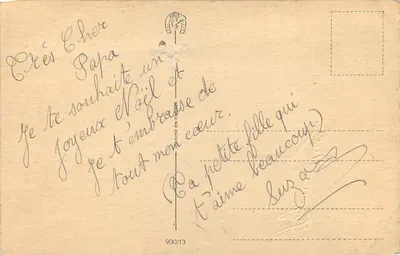 Très Cher
Papa
Je te souhaite un
Joyeux Noël et
Je t'embrasse de
tout mon cœur.
(Ta petite fille qui
t'aime beaucoup.)
Suza
900/13